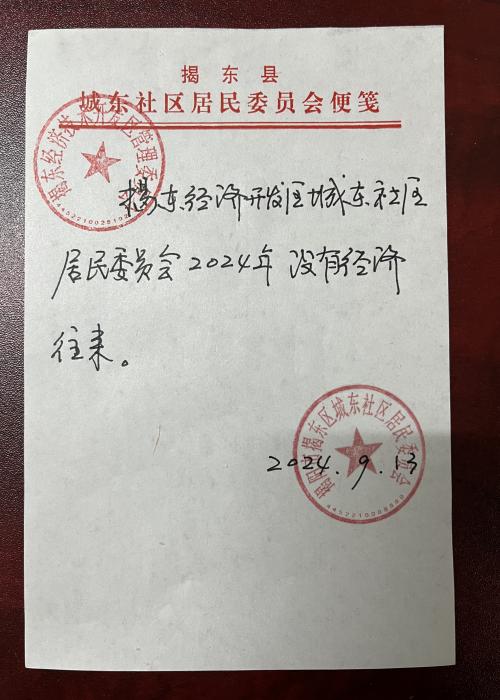 揭东县
城东社区居民委员会便笺
揭东经济技术开发区管理委
揭东经济开发区城东社区
居民委员会2024年没有经济
往来。
揭阳市揭东区城东社区居民委员会
2024.9.13